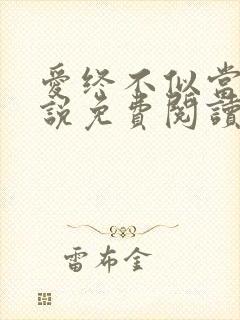 愛終不似當
說免費閱讀
雷布金